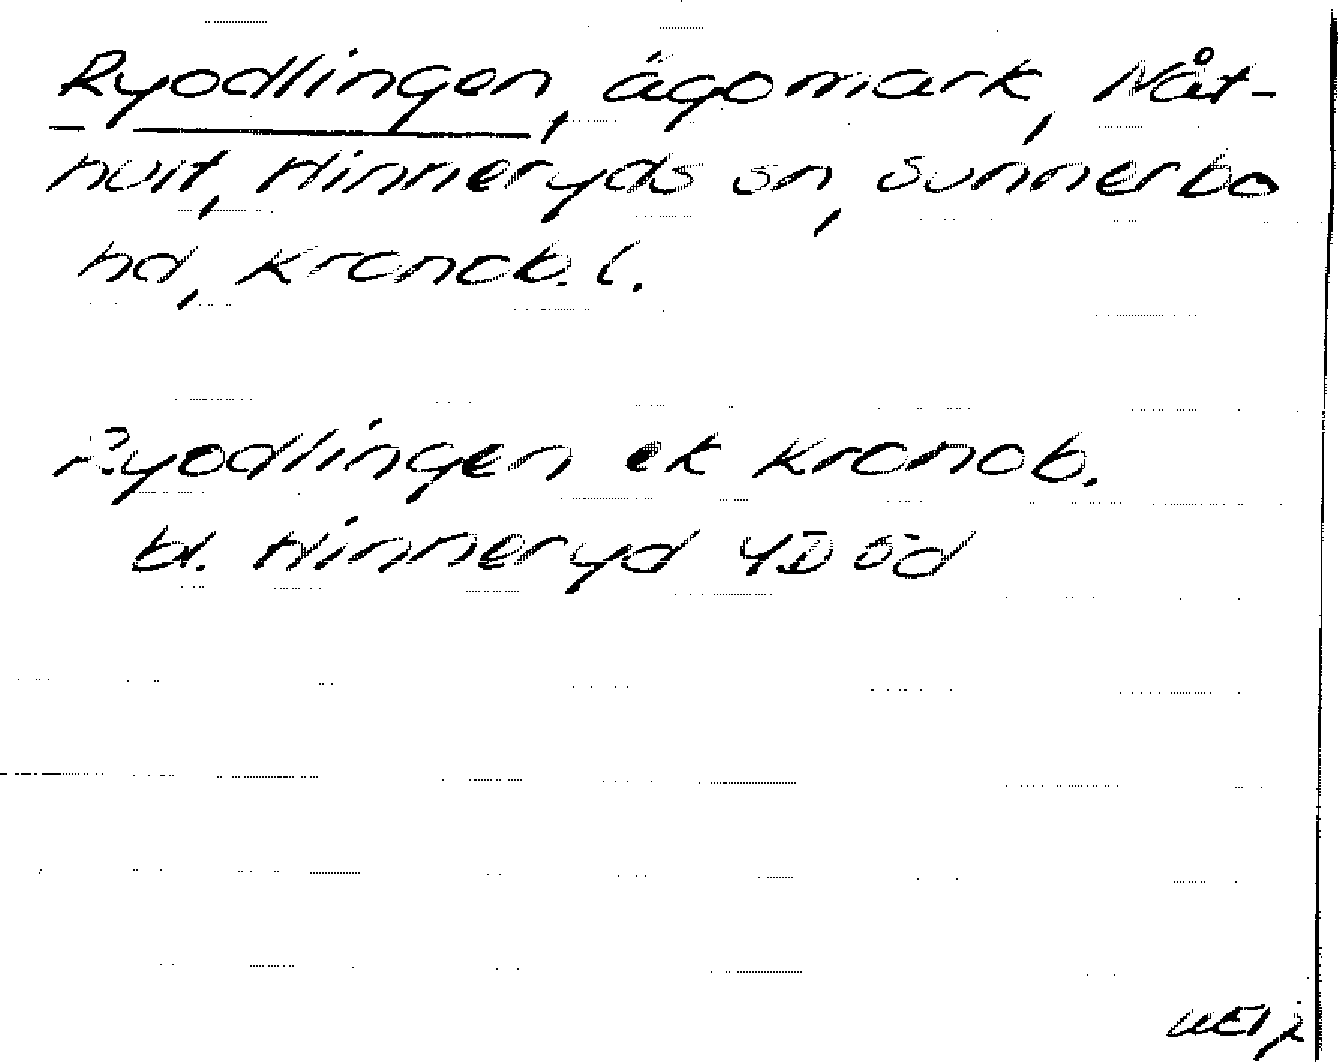 Ryodlingen, ägomark, Nåt-
hult, Hinneryds sn, Sunnerbo
hd, Kronob. l.
Ryodlingen ek Kronob.
bl. Hinneryd 4D öd